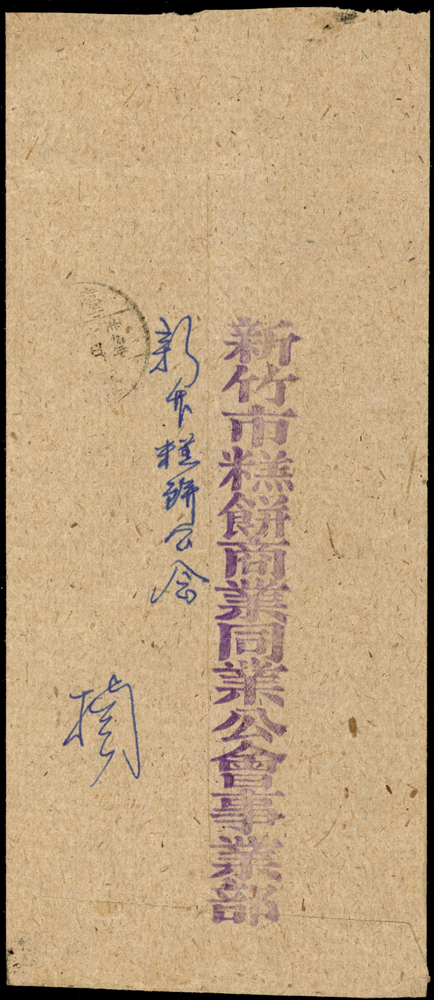 新竹市糕餅商業同業公會事業部
新竹糕餅公会